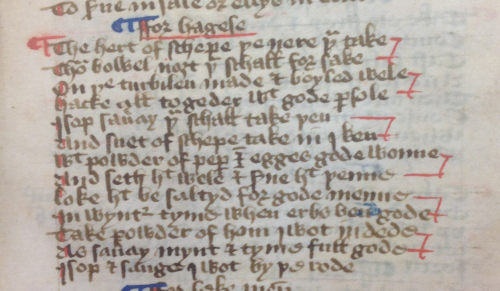 To s'ue in sale or ellys in
for hagese
The hert of schepe þe nere þu take
Tho bowel nozt þu schalt for sake
On þe turbilen made & boyled wele
hacke all to geder wt gode p'sole
Isop sauay þu schall take þen
And suet of schepe take in I ken
Wt powder of pep' & egges gode wonne
And seth ht wele & s'ue ht þenne
loke ht be saltyd for gode menne
In wynt' tyme when erbs ben gode
Take powder of hom I wot in dede
As sauay mynt & tyme full gode
Isop & sauge I wot by þe rode